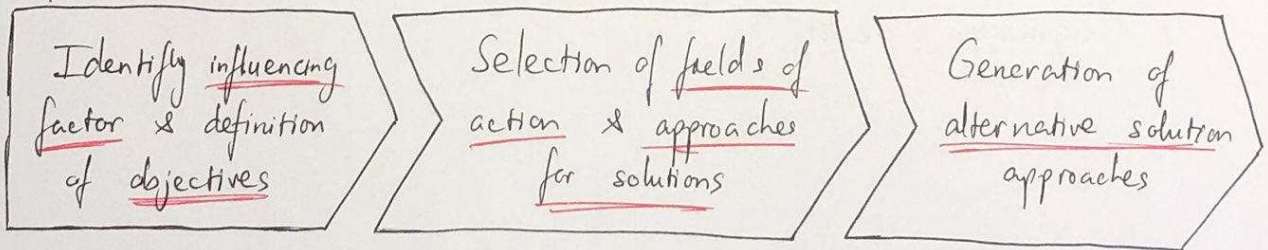 Identifly influencing
factor & definition
of objectives
Selection of fields of
action & approaches
for solutions
Generation of
alternative solution
approaches